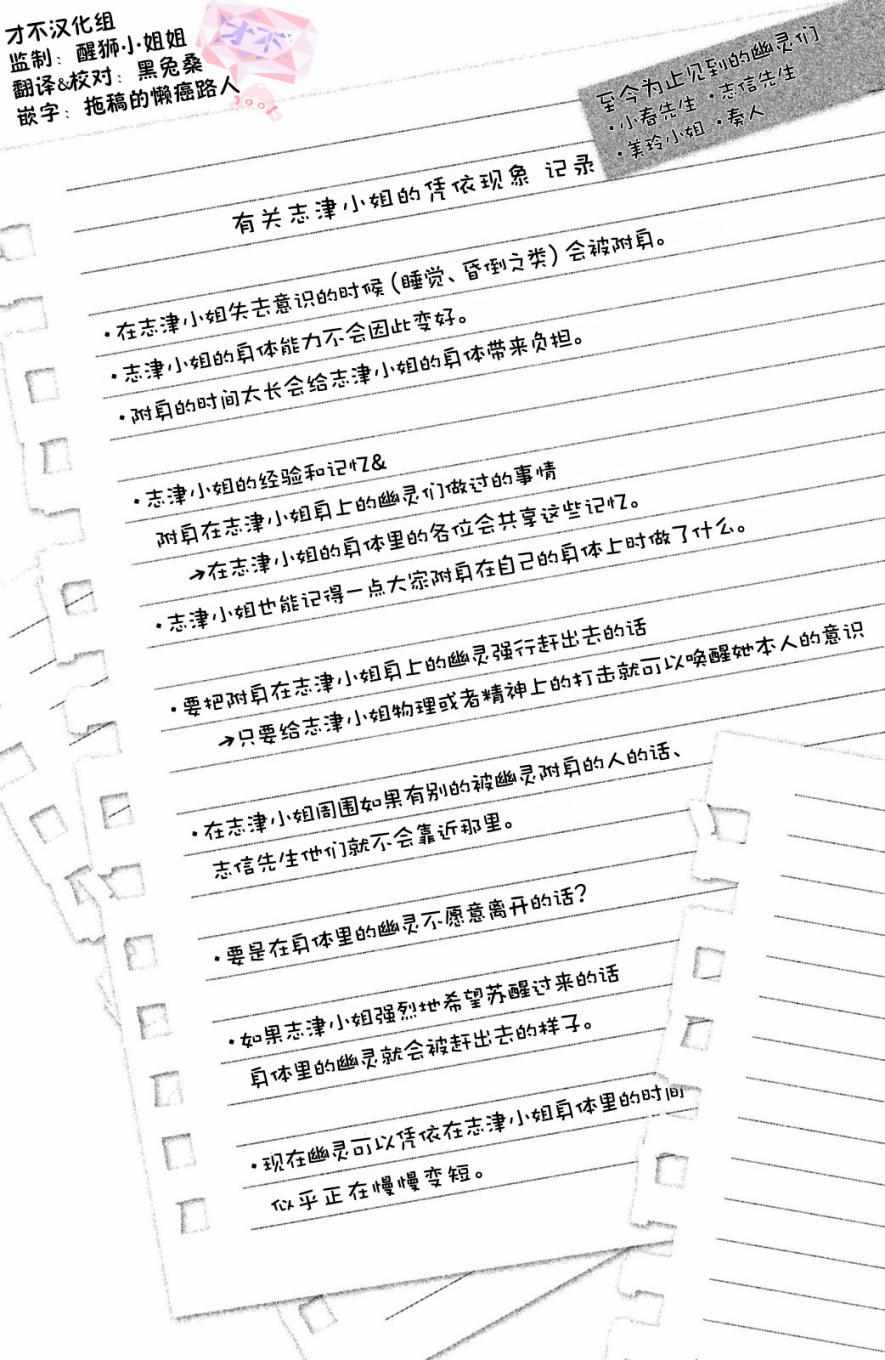 才不汉化组
监制：醒狮小姐姐
翻译&校对：黑兔桑
嵌字：拖稿的懒癌路人
才不
至今为止见到的幽灵们
・小春先生 ・志信先生
・美玲小姐 ・奏人
有关志津小姐的凭依现象 记录
・在志津小姐失去意识的时候(睡觉、昏倒之类)会被附身。
・志津小姐的身体能力不会因此变好。
・附身的时间太长会给志津小姐的身体带来负担。
・志津小姐的经验和记忆&
附身在志津小姐身上的幽灵们做过的事情
→在志津小姐的身体里的各位会共享这些记忆。
・志津小姐也能记得一点大家附身在自己的身体上时做了什么。
・要把附身在志津小姐身上的幽灵强行赶出去的话
→只要给志津小姐物理或者精神上的打击就可以唤醒她本人的意识
・在志津小姐周围如果有别的被幽灵附身的人的话、
志信先生他们就不会靠近那里。
・要是在身体里的幽灵不愿意离开的话?
・如果志津小姐强烈地希望苏醒过来的话
身体里的幽灵就会被赶出去的样子。
・现在幽灵可以凭依在志津小姐身体里的时间
似乎正在慢慢变短。